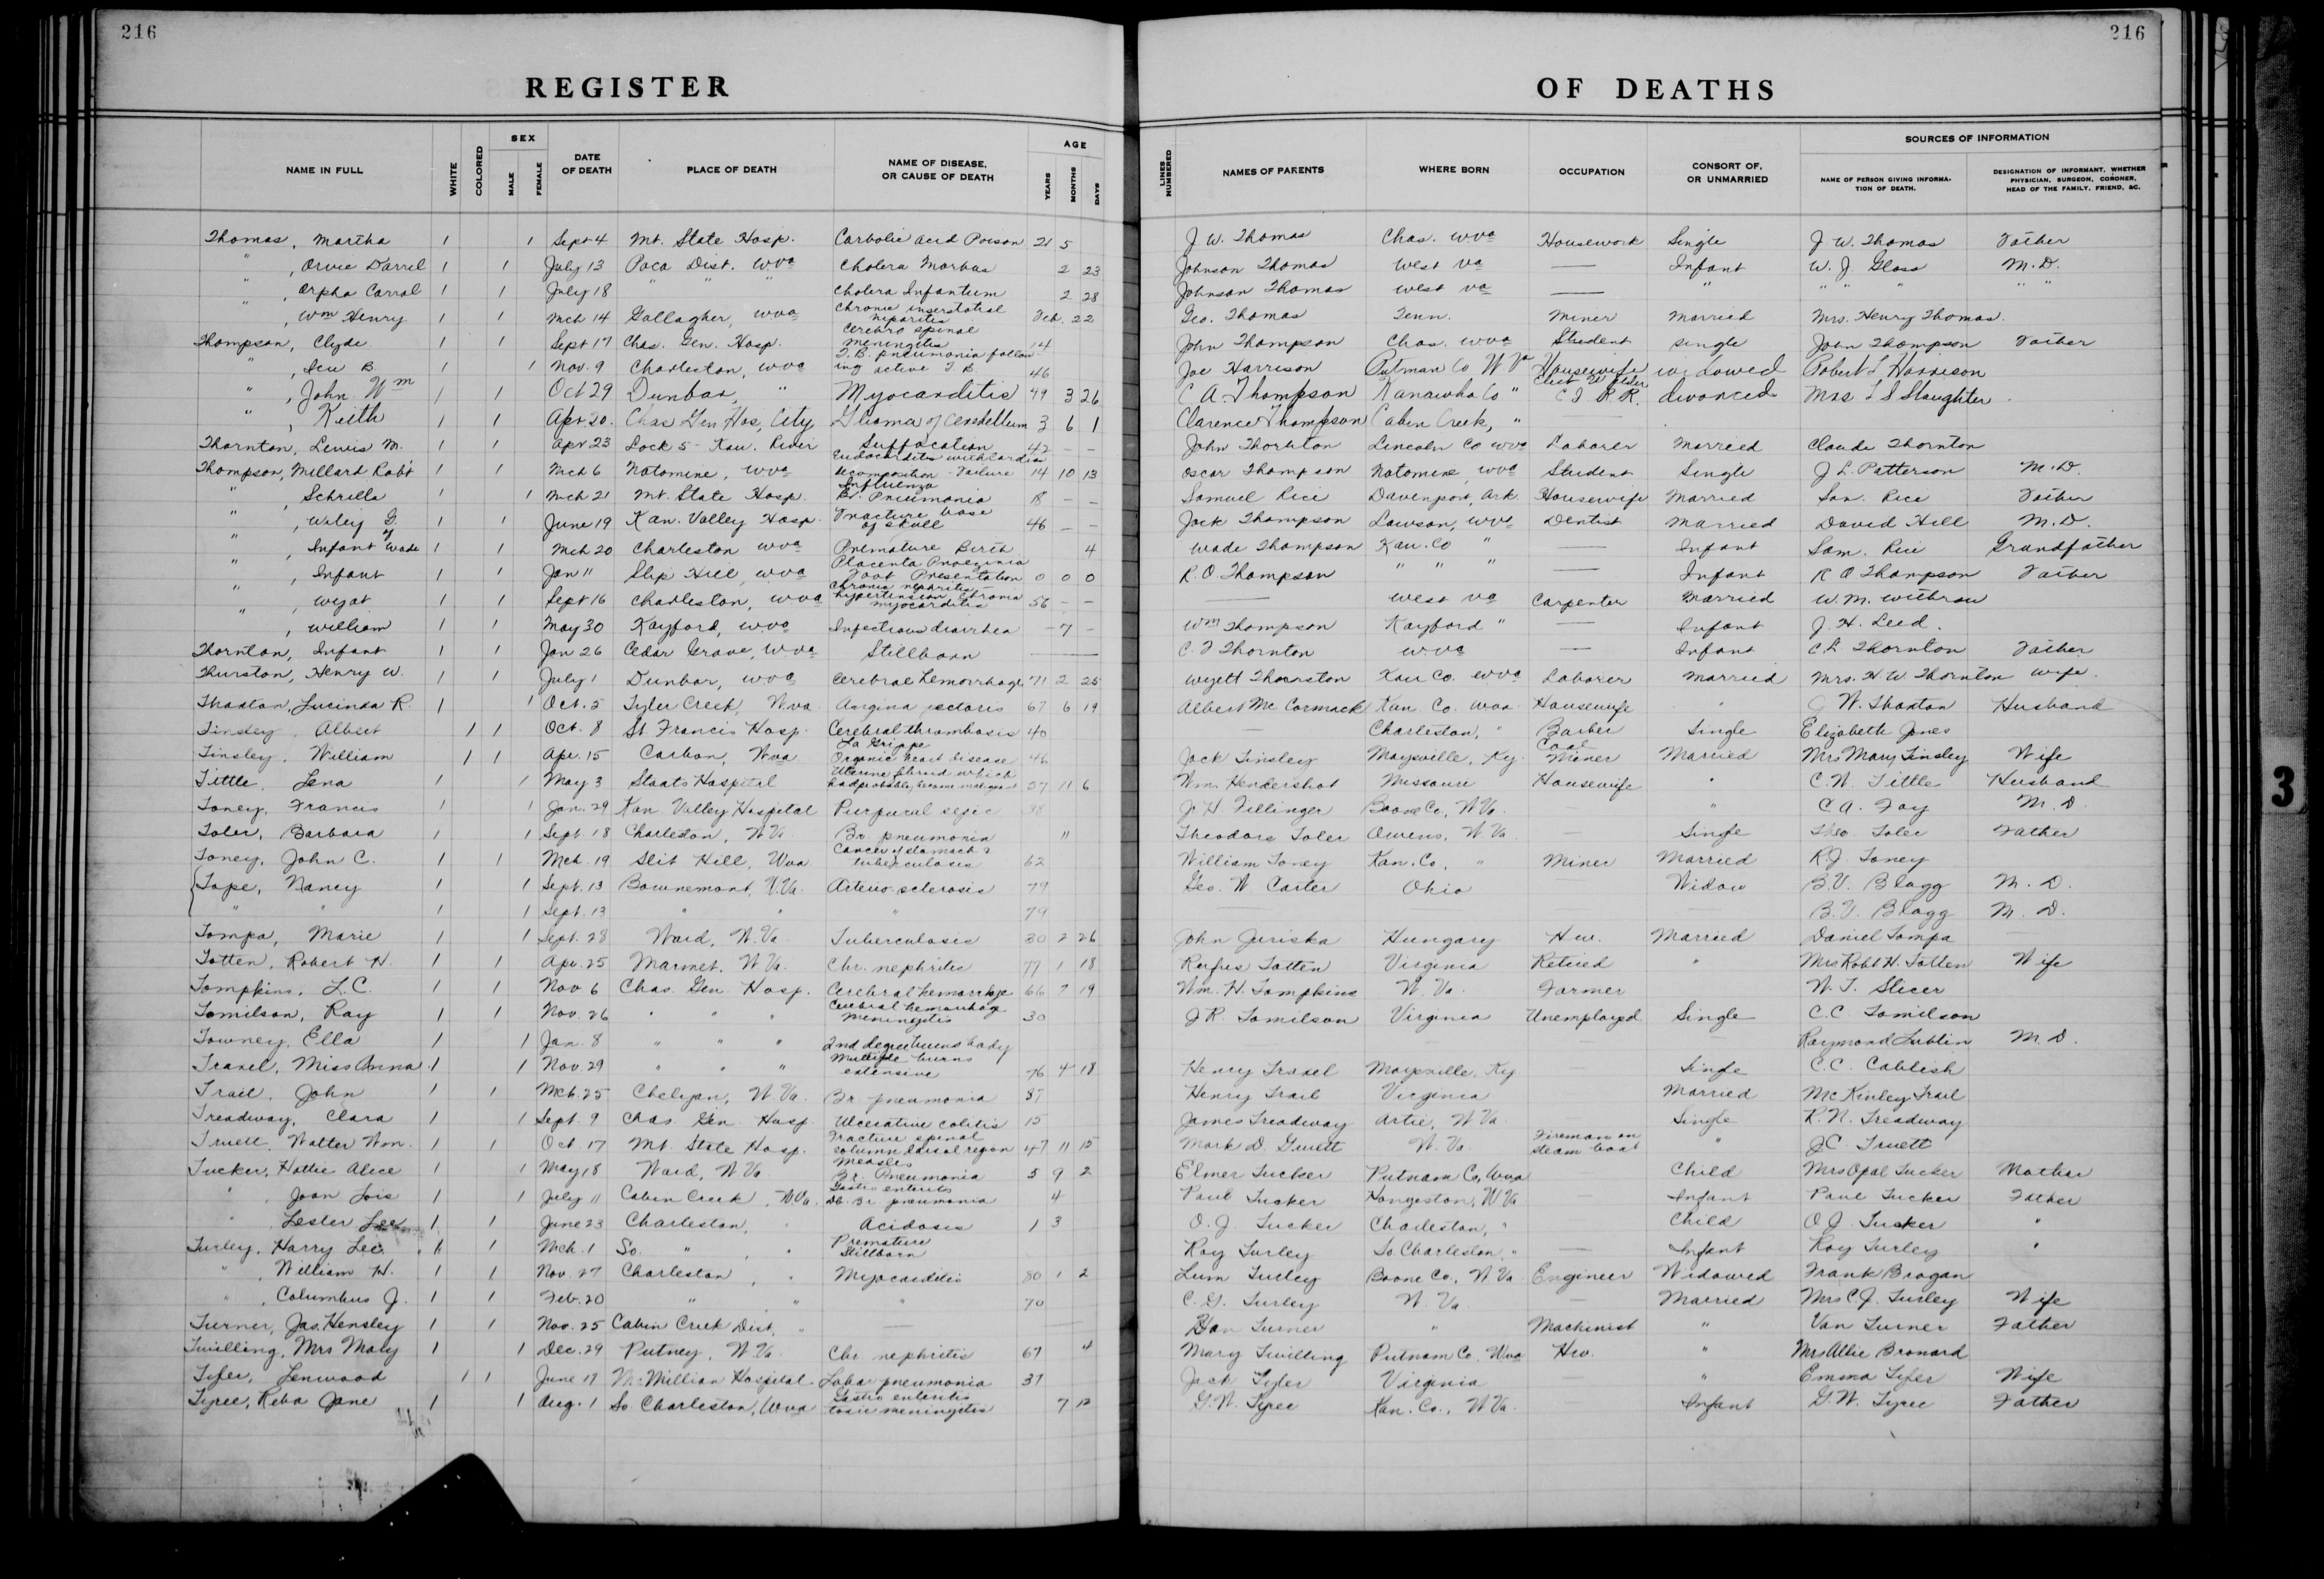 216
216
REGISTER OF DEATHS
NAME IN FULL WHITE COLORED SEX MALE FEMALE DATE OF DEATH PLACE OF DEATH NAME OF DISEASE, OR CAUSE OF DEATH AGE YEARS MONTHS DAYS LINES NUMBERED NAMES OF PARENTS WHERE BORN OCCUPATION CONSORT OF, OR UNMARRIED SOURCES OF INFORMATION NAME OF PERSON GIVING INFORMATION OF DEATH. DESIGNATION OF INFORMANT, WHETHER PHYSICIAN, SURGEON, CORONER, HEAD OF THE FAMILY, FRIEND, &C.
Thomas, Martha 1 1 Sept 4 Mt. State Hosp. Carbolic acid Poison 21 5 J. W. Thomas Chas. Wva Housework Single J W. Thomas Father
" , Orvie Darrel 1 1 July 13 Poca Dist. Wva Cholera Morbus 2 23 Johnson Thomas West Va — Infant W. J. Glass M.D.
" , Orpha Carral 1 1 July 18 " " " Cholera Infantum 2 28 Johnson Thomas West Va — " " " " " "
" , Wm Henry 1 1 Mch 14 Gallagher, Wva Chronic interstatial neparitis Feb. 22 Geo. Thomas Tenn. Miner Married Mrs. Henry Thomas.
Thompson, Clyde 1 1 Sept 17 Chas. Gen. Hosp. Cerebro spinal meningitis 14 John Thompson Chas. Wva Student Single John Thompson Father
" , B. 1 1 Nov. 9 Charleston, Wva T.B. pneumonia following active T.B. 46 Joe Harrison Putman Co W Va Housewife widowed Robert L Harrison
" , John Wm 1 1 Oct 29 Dunbar, " Myocarditis 49 3 26 C. A. Thompson Kanawha Co " C I R R. divorced Mrs L S Slaughter
" , Keith 1 1 Apr 20. Chas Gen Hos, City Glioma of Cerebellum 3 6 1 Clarence Thompson Cabin Creek, "
Thornton, Lewis M. 1 1 Apr 23 Lock 5 - Kan. River Suffocation 42 — — John Thornton Lincoln Co Wva Laborer Married Claude Thornton
Thompson, Millard Robt 1 1 Mch 6 Natomine, Wva Endocarditis with Cardiac decomposition - Failure 14 10 13 Oscar Thompson Natomine, Wva Student Single J. L. Patterson M.D.
" , Schrilla 1 1 Mch 21 Mt. State Hosp. Influenza Br. Pneumonia 18 — — Samuel Rice Davenport, Ark. Housewife Married Sam. Rice Father
" , Wiley G. 1 1 June 19 Kan. Valley Hosp. Fracture base of skull 46 — — Jack Thompson Lawson, Wva Dentist Married David Hill M.D.
" , Infant of Wade 1 1 Mch 20 Charleston Wva Premature Birth 4 Wade Thompson Kan. Co " — Infant Sam. Rice Grandfather
" , Infant 1 1 Jan 11 Slip Hill, Wva Placenta Foot Presentation 0 0 0 R. O Thompson " " " — Infant R O Thompson Father
" , Wyat 1 1 Sept 16 Charleston, Wva Chronic nephritis - hypertension, Chronic myocarditis 56 — — — West Va Carpenter Married W. M. Withrow
" , William 1 1 May 30 Kayford, Wva Infectious diarrhea — 7 — Wm Thompson Kayford " — Infant J. H. Leed.
Thornton, Infant 1 1 Jan 26 Cedar Grove, Wva Stillborn — C. L Thornton Wva — Infant C L Thornton Father
Thurston, Henry W. 1 1 July 1 Dunbar, Wva Cerebral Hemorrhage 71 2 25 Wyett Thurston Kan Co. Wva Laborer Married Mrs. H. W. Thornton Wife.
Thaxton, Lucinda R. 1 1 Oct. 5 Tyler Creek, W.va. Angina pectoris 67 6 19 Albert McCormack Kan. Co. Wva. Housewife " J W. Thaxton Husband
Tinsley, Albert 1 1 Oct. 8 St. Francis Hosp. Cerebral thrombosis 40 — Charleston, " Barber Single Elizabeth Jones
Tinsley, William 1 1 Apr. 15 Carbon, W.va La Grippe Organic heart disease 46 Jack Tinsley Maysville, Ky. Coal Miner Married Mrs Mary Tinsley Wife
Tittle, Lena 1 1 May 3 Staats Hospital Uterine fibroid which had probably become malignant 37 11 6 Wm. Hendershot Missouri Housewife " C. W. Tittle Husband
Toney, Francis 1 1 Jan. 29 Kan. Valley Hospital Puerpural sepic 38 J. H. Fillinger Boone Co., W.Va. — " C. A. Fay M. D
Toler, Barbara 1 1 Sept. 18 Charleston, W.Va Br. pneumonia 11 Theodore Toler Owens, W. Va. — Single Theo. Toler Father
Toney, John C. 1 1 Mch. 19 Slit Hill, Wva Cancer of stomach & tuberculosis 62 William Toney Kan. Co., " Miner Married R. J. Toney
Tope, Nancy 1 1 Sept. 13 Bownemont, W.Va. Arterio-sclerosis 79 Geo. W. Carter Ohio Widow B. V. Blagg M. D.
" " 1 1 Sept. 13 " " " 79 — — B. V. Blagg M. D.
Tompa, Marie 1 1 Sept. 28 Ward, W.Va. Tuberculosis 30 2 26 John Juriska Hungary H.w. Married Daniel Tompa —
Totten, Robert H. 1 1 Apr. 25 Marmet, W.Va. Chr. nephritis 77 1 18 Rufus Totten Virginia Retired " Mrs Robt H. Totten Wife
Tompkins, L.C. 1 1 Nov. 6 Chas. Gen. Hosp. Cerebral hemorrhage 66 7 19 Wm. H. Tompkins W. Va. Farmer W. T. Slicer
Tomilson, Ray 1 1 Nov. 26 " " " Cerebral hemorrhage Meningitis 30 J R. Tomilson Virginia Unemployed Single C. C. Tomilson
Towney, Ella 1 1 Jan. 8 " " " 2nd degree burns body — — Raymond Lublin M. D.
Traxel, Miss Anna 1 1 Nov. 29 " " " Multiple burns extensive 76 4 18 Henry Traxel Maysville, Ky — Single C. C. Cablish
Trail, John 1 1 Mch. 25 Chelyan, W.Va. Br. pneumonia 37 Henry Trail Virginia Married McKinley Trail
Treadway, Clara 1 1 Sept. 9 Chas. Gen. Hosp. Ulcerative colitis 15 James Treadway Artie, W. Va. Single R. N. Treadway
Truett, Walter Wm. 1 1 Oct. 17 Mt. State Hosp. Fracture spinal column dorsal region 47 11 15 Mark D. Truett W. Va. Fireman on steam boat " J.C. Truett
Tucker, Hattie Alice 1 1 May 18 Ward, W.Va Measles Br. Pneumonia 5 9 2 Elmer Tucker Putnam Co, Wva Child Mrs Opal Tucker Mother
" , Joan Lois 1 1 July 11 Cabin Creek, W.Va. Gastro enteritis Db. Br. pneumonia 4 Paul Tucker W.Va Infant Paul Tucker Father
" , Lester Lee 1 1 June 23 Charleston, " Acidosis 1 3 O. J. Tucker Charleston, " Child O J. Tucker "
Turley, Harry Lee 1 1 Mch. 1 So. " , " Premature Stillborn Roy Turley So. Charleston, " — Infant Roy Turley "
" , William H. 1 1 Nov. 27 Charleston, " Myocarditis 80 1 2 Lum Turley Boone Co., W.Va. Engineer Widowed Frank Brogan
" , Columbus J. 1 1 Feb. 20 " , " " 70 C. G. Turley W. Va. — Married Mrs C. J. Turley Wife
Turner, Jas. Hensley 1 1 Nov. 25 Cabin Creek Dist, " — — Turner " Machinist " Van Turner Father
Twilling, Mrs Mary 1 1 Dec. 29 Putney, W.Va. Chr. nephritis 67 4 Mary Twilling Putnam Co, Wva Hw. " Mrs Allie Bronard
Tyler, Lenwood 1 1 June 17 McMillian Hospital Lobar pneumonia 37 Jack Tyler Virginia — " Emma Tyler Wife
Tyree, Reba Jane 1 1 Aug. 1 So. Charleston, Wva Gastro enteritis toxic meningitis 7 12 G. W. Tyree Kan. Co., W.Va. — Infant G. W. Tyree Father
3